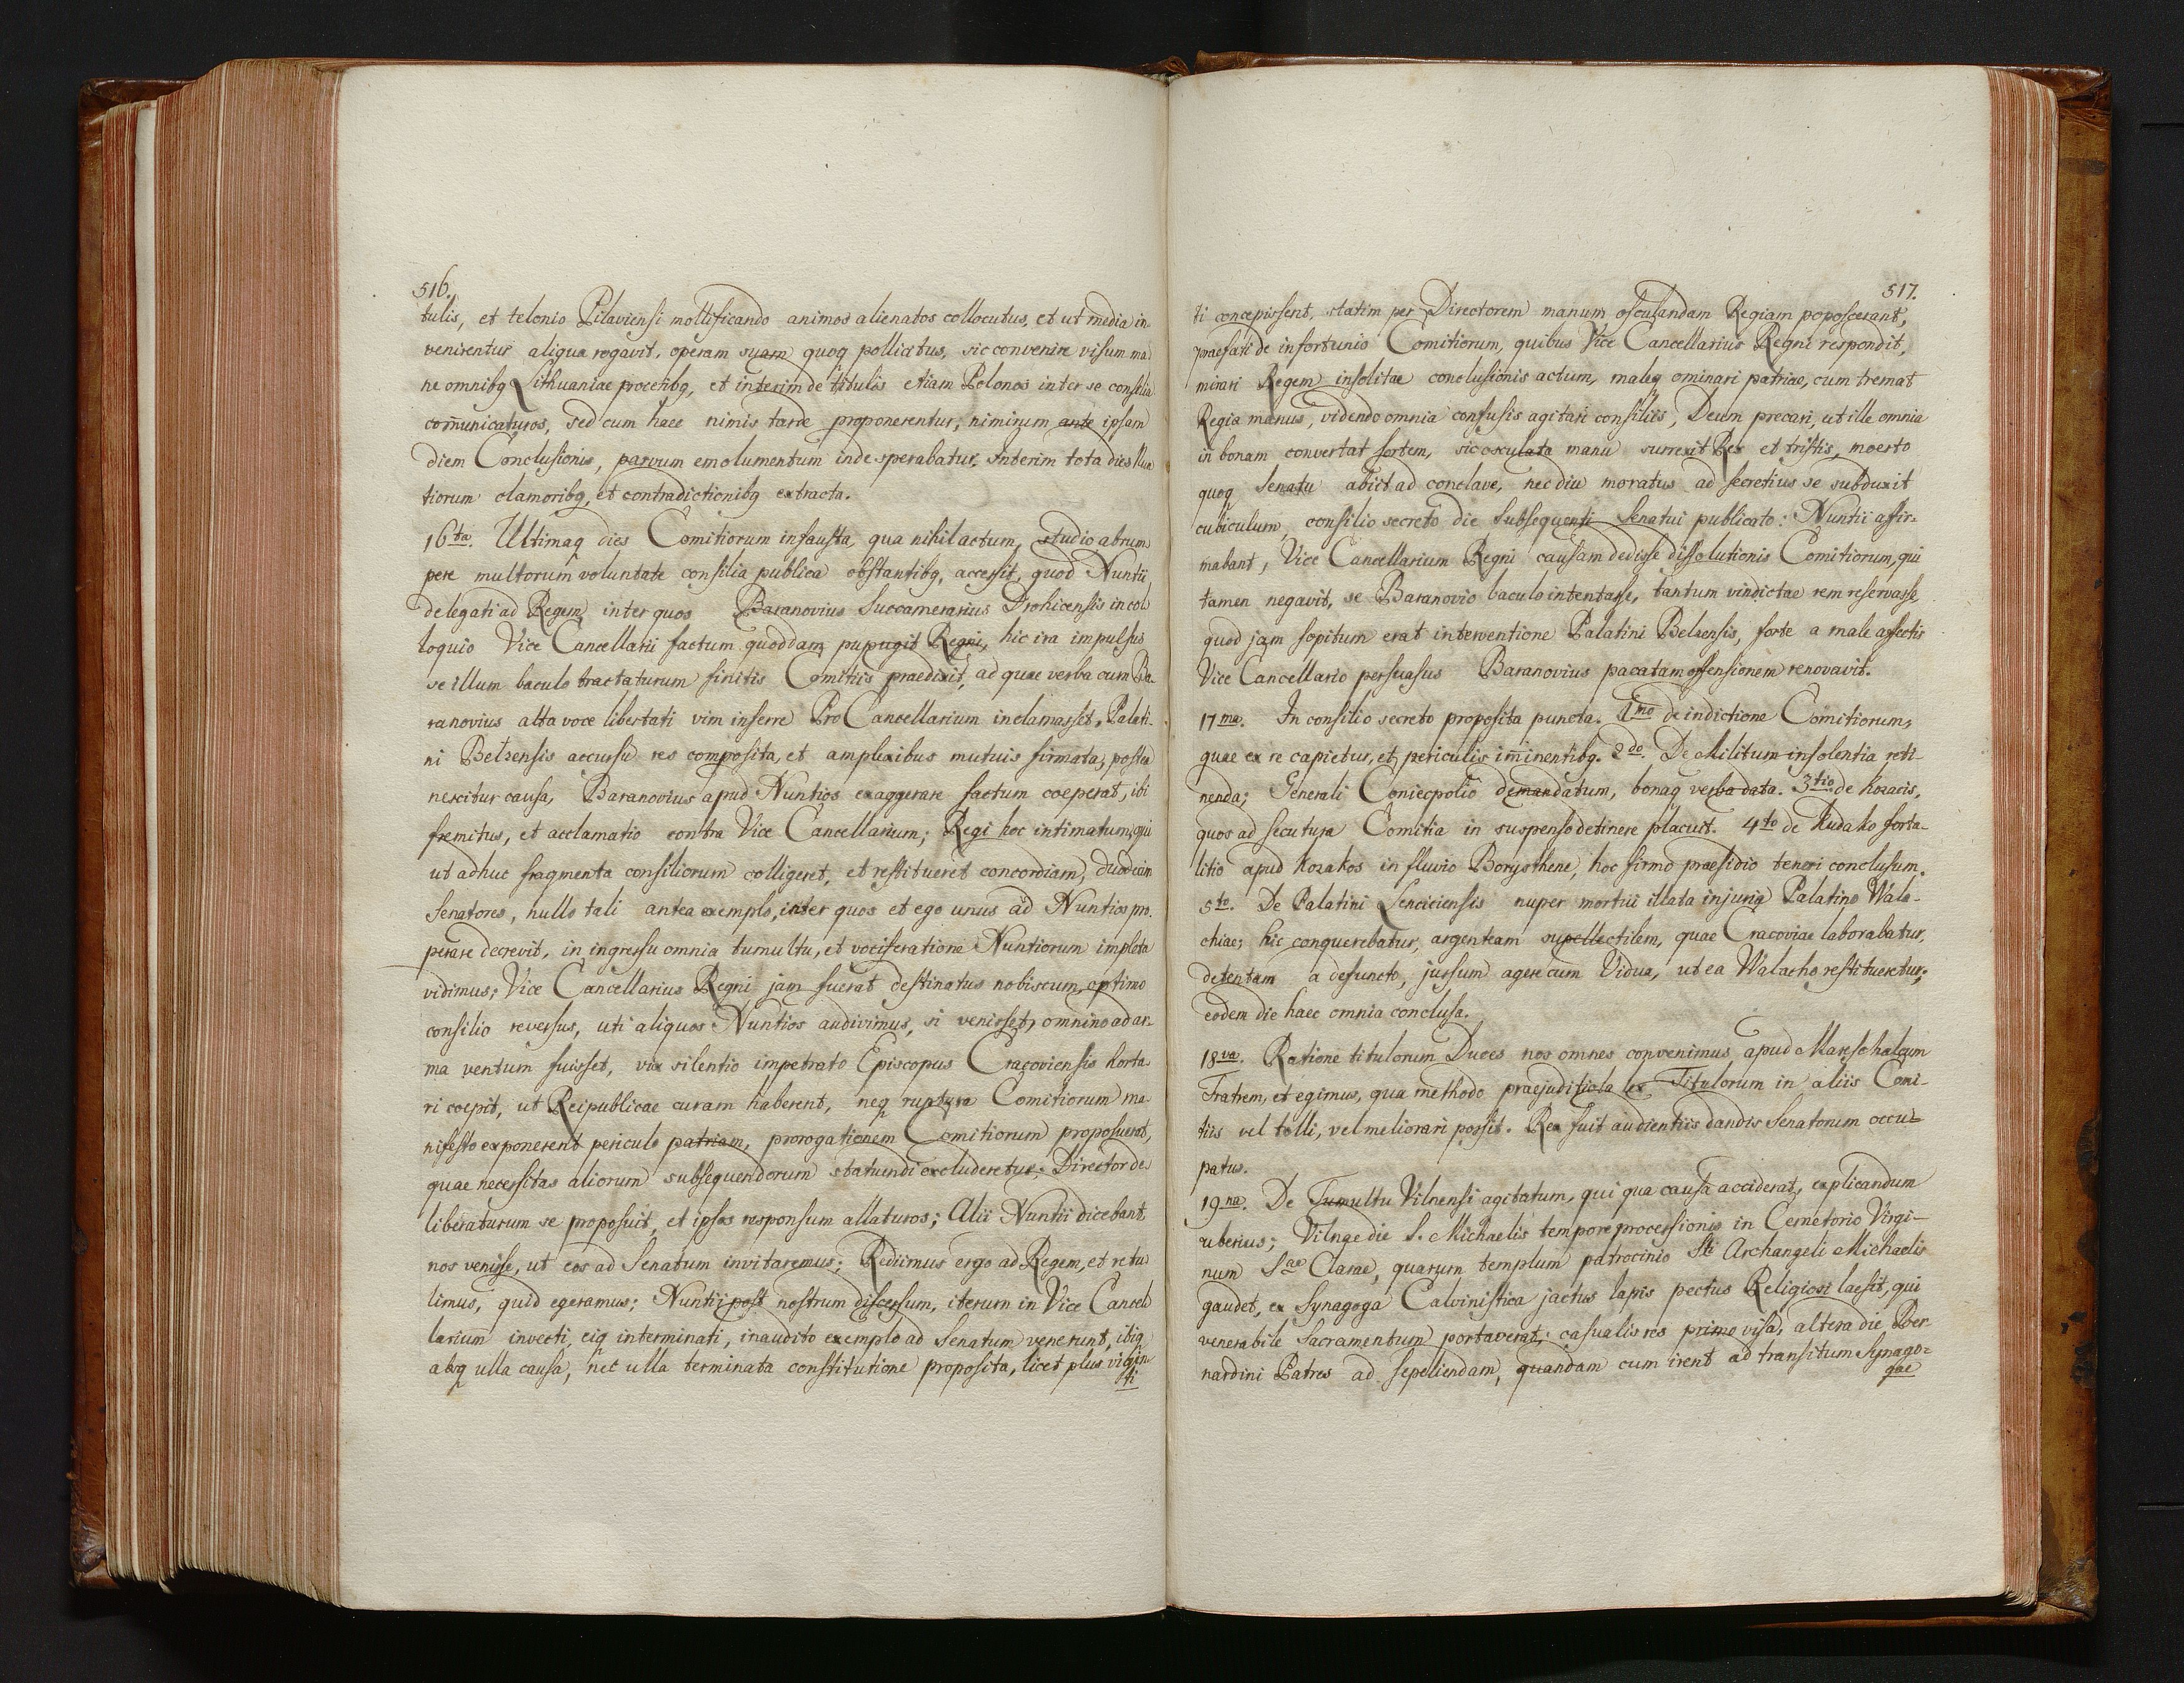 516.
tulis, et telonio Pilaviensi mollificando animos alienatos collocutus, et ut media in-
venirentur aliqua rogavit, operam suam quoq pollicitus, sic convenire visum ma-
ne omnibq Lithuaniae procetibq, et interim de titulis etiam Polonos inter se consilia
com̄unicaturos, sed cum haec nimis tarde proponerentur, nimirum ante ipsam
diem Conclusionis, parvum emolumentum inde sperabatur. Interim tota dies Nun
tiorum clamoribq, et contradictionibq extracta.
16ta. Ultimaq dies Comitiorum infausta, qua nihil actum, studio abrum
pere multorum voluntate consilia publica obstantibq, accessit, quod Nuntii
delegati ad Regem, inter quos Baranovius Succamerarius Drohicensis in col
loquio Vice Cancellarii factum quoddam pupugit Regni, hic ira impulsus
se illum baculo tractaturum finitis Comitiis praedixit, ad quae verba cum Ba-
ranovius alta voce libertati vim inferre Pro Cancellarium inclamasset, Palati-
ni Belzensis accursu res composita, et amplexibus mutuis firmata, postea
nescitur causa, Baranovius apud Nuntios exaggerare factum coeperat, ibi
fremitus, et acclamatio contra Vice Cancellarium; Regi hoc intimatum, qui
ut adhuc fragmenta consiliorum colligeret, et restitueret concordiam, duodecim
Senatores, nullo tali antea exemplo, inter quos et ego unus ad Nuntios pro-
perare decrevit, in ingressu omnia tumultu, et vociferatione Nuntiorum impleta
vidimus; Vice Cancellarius Regni jam fuerat destinatus nobiscum, optimo
consilio reversus, uti aliquos Nuntios audivimus, si venisset, omnino ad ar-
ma ventum fuisset, vix silentio impetrato Episcopus Cracoviensis horta-
ri coepit, ut Reipublicae curam haberent, neq ruptura Comitiorum ma-
nifesto exponerent periculo patriam, prorogationem Comitiorum proposuerat,
quae necessitas aliorum subsequendorum statuendi excluderetur; Director de-
liberaturum se proposuit, et ipsos responsum allaturos; Alii Nuntii dicebant
nos venisse, ut eos ad Senatum invitaremus; Rediimus ergo ad Regem, et retu
limus, quid egeramus; Nuntii post nostrum discessum, iterum in Vice Cancel
larium invecti, eiq interminati, inaudito exemplo ad Senatum venerunt, ibiq
absq ulla causa, nec ulla terminata constitutione proposita, licet plus vigin-
ti
517.
ti concepissent, statim per Directorem manum osculandam Regiam poposcerant,
praefati de infortunio Comitiorum, quibus Vice Cancellarius Regni respondit,
mirari Regem insolitae conclusionis actum, maleq ominari patriae, cum tremat
Regia manus, videndo omnia confusis agitari consiliis, Deum precari, ut ille omnia
in bonam convertat sortem, sic osculata manu surrexit Rex et tristis, moesto
quoq Senatu abiit ad conclave, nec diu moratus ad secretius se subduxit
cubiculum, consilio secreto die subsequenti Senatui publicato: Nuntii affir-
mabant, Vice Cancellarium Regni causam dedisse dissolutionis Comitiorum, qui
tamen negavit, se Baranovio baculo intentasse, tantum vindictae rem reservasse
quod jam sopitum erat interventione Palatini Belzensis, forte a male affectis
Vice Cancellario persuasus Baranovius pacatam offensionem renovavit.
17ma. In consilio secreto proposita puncta. 1mo de indictione Comitiorum,
quae ex re capietur, et periculis im̄inentibq. 2do. De Militum insolentia reti-
nenda; Generali Coniecpolio demandatum, bonaq verba data. 3tio de Kozacis,
quos ad secutura Comitia in suspenso detinere placuit. 4to de Kudako forta-
litio apud Kozakos in fluvio Borysthene, hoc firmo praesidio teneri conclusum.
5to. De Palatini Lenciciensis nuper mortui illata injuria Palatino Wala-
chiae; hic conquerebatur, argenteam supellectilem, quae Cracoviae laborabatur,
detentam a defuncto, jussum agere cum Vidua, ut ea Walacho restitueretur;
eodem die haec omnia conclusa.
18va. Ratione titulorum Duces nos omnes convenimus apud Mareschalcum
Fratrem, et egimus, qua methodo praejuditiola lex Titulorum in aliis Comi-
tiis vel tolli, vel meliorari possit. Rex fuit audientiis dandis Senatorum occu-
patus.
19na. De Tumultu Vilnensi agitatum, qui qua causa acciderat, explicandum
uberius; Vilnae die S. Michaelis tempore processionis in Cemetorio Virgi-
num Sae Clarae, quarum templum patrocinio Sti Archangeli Michaelis
gaudet, ex Synagoga Calvinistica jactus lapis pectus Religiosi laesit, qui
venerabile Sacramentum portaverat; casualis res primo visa, altera die Ber
nardini Patres ad sepeliendam, quandam cum irent ad transitum Synago-
gae